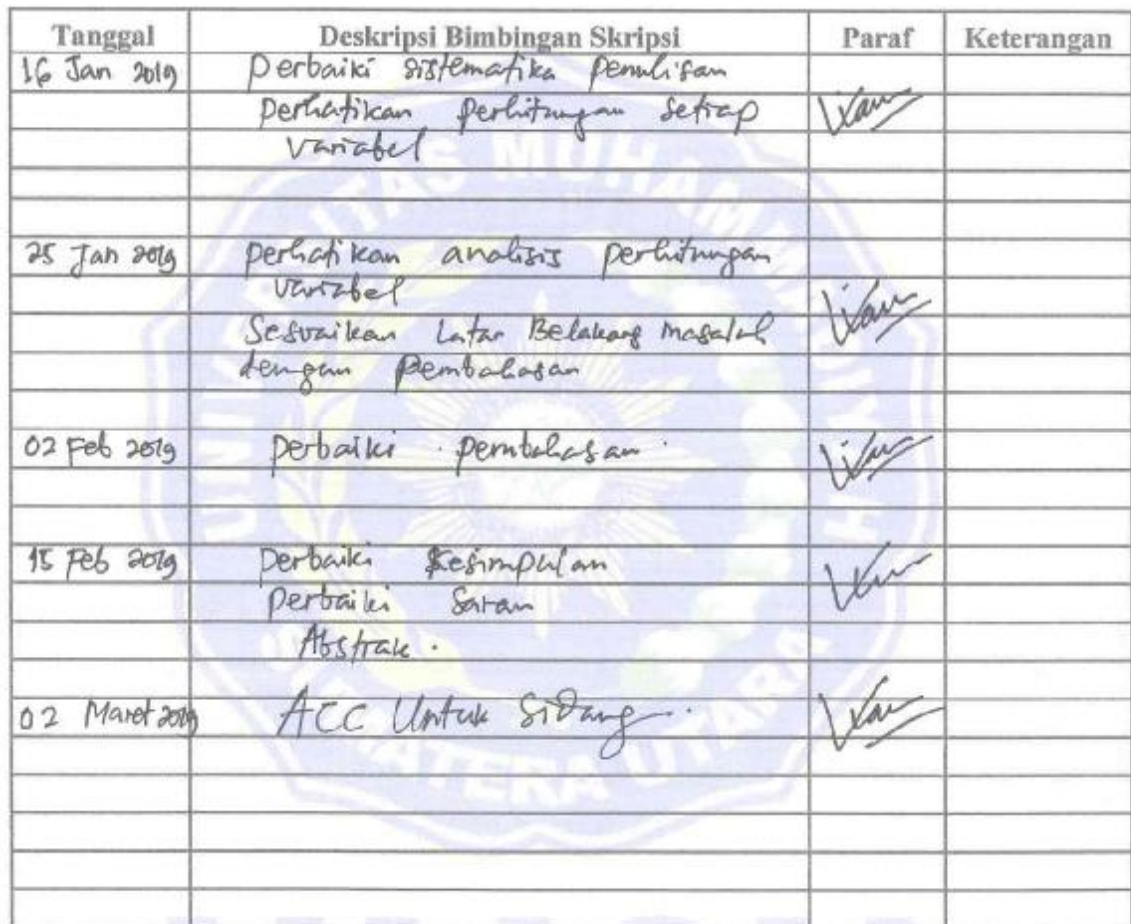 Tanggal Deskripsi Bimbingan Skripsi Paraf Keterangan
16 Jan 2019 Perbaiki sistematika penulisan
perhatikan perhitungan setiap
variabel
25 Jan 2019 perhatikan analisis perhitungan
variabel
Sesuaikan Latar Belakang masalah
dengan Pembahasan
02 Feb 2019 perbaiki pembahasan.
15 Feb 2019 Perbaiki Kesimpulan
Perbaiki Saran
Abstrak.
02 Maret 2019 ACC Untuk Sidang.
UNIVERSITAS MUHAMMADIYAH
SUMATERA UTARA